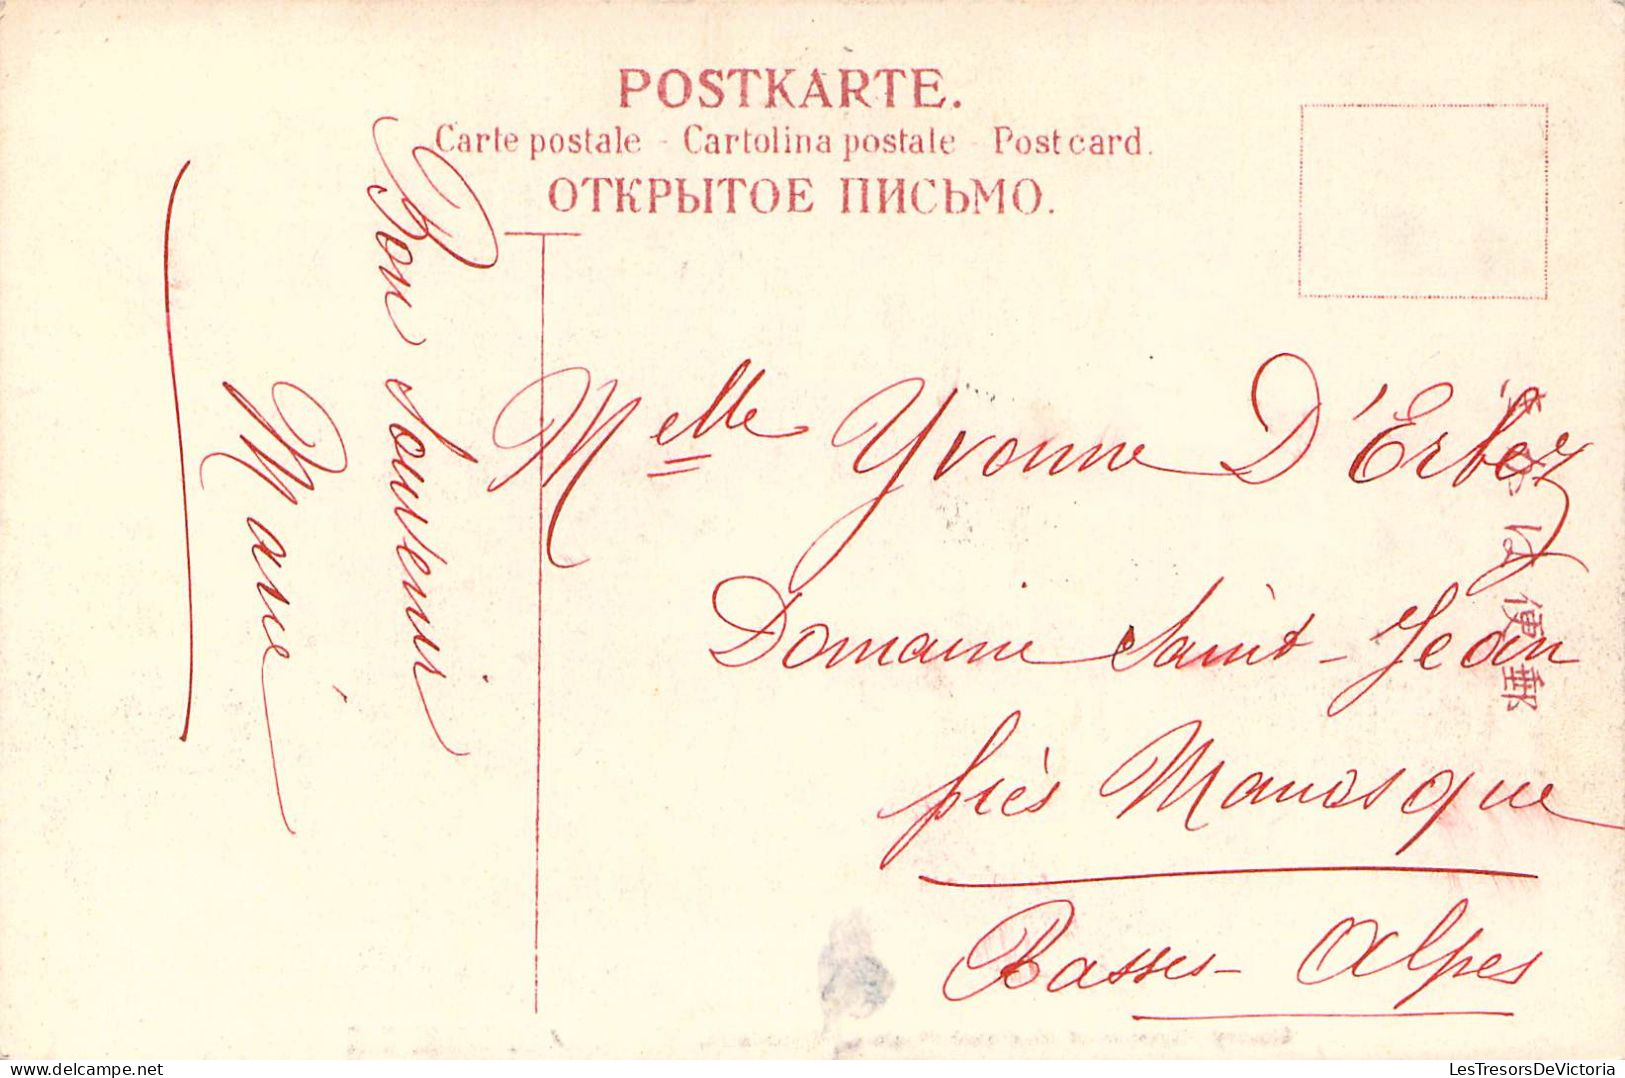 POSTKARTE.
Carte postale - Cartolina postale - Post card.
ОТКРЫТОЕ ПИСЬМО.
Bon souvenir
Mané
Melle Yvonne D'Erbez
Domaine Saint-Jean
près Manosque
Basses-Alpes
郵便は
delcampe.net LesTresorsDeVictoria